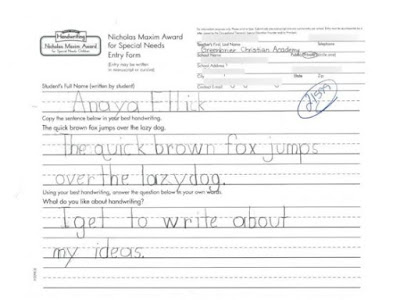 Handwriting
Nicholas Maxim Award
for Special Needs Children
Nicholas Maxim Award
for Special Needs
Entry Form
(Entry may be written
in manuscript or cursive)
Teacher's First and Last Name
Telephone
Greenbrier Christian Academy
School Name
School Address
City
Contest Level
Student's Full Name (written by student)
Anaya Ellick
Copy the sentence below in your best handwriting.
The quick brown fox jumps over the lazy dog.
The quick brown fox jumps
over the lazy dog.
Using your best handwriting, answer the question below in your own words.
What do you like about handwriting?
I get to write about
my ideas.